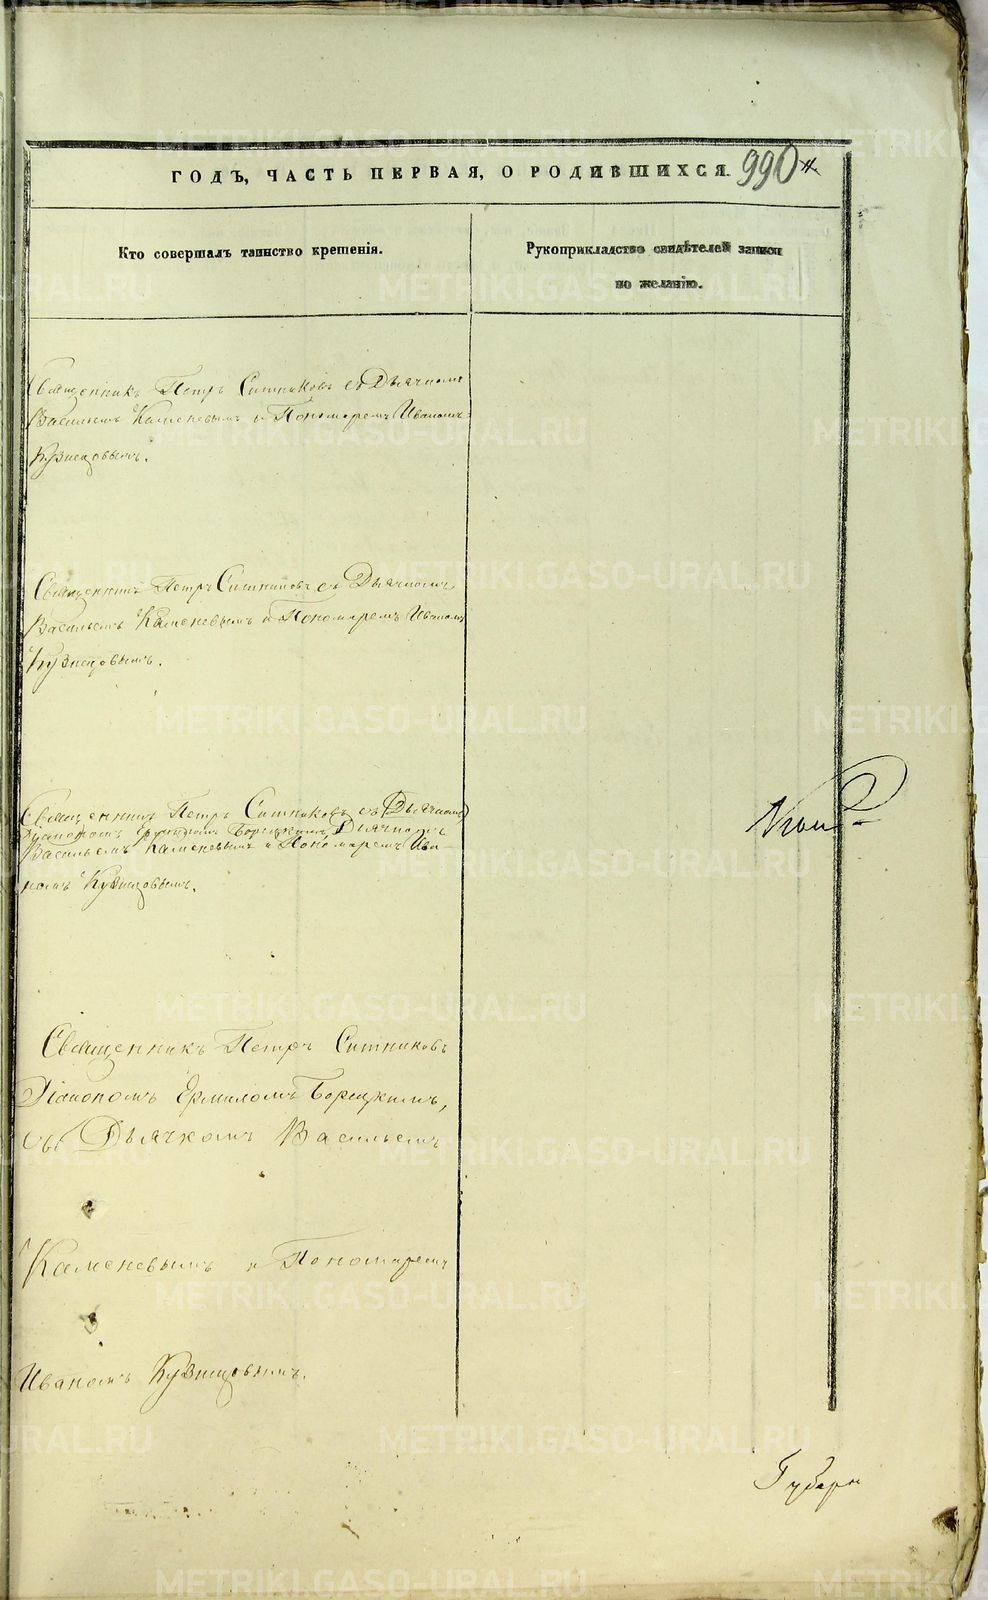 ГОДЪ, ЧАСТЬ ПЕРВАЯ, О РОДИВШИХСЯ. 990
Кто совершалъ таинство крещенія.
Рукоприкладство свидѣтелей записи
по желанію.
Священникъ Петръ Ситниковъ съ Дьячкомъ
Васильемъ Каменевымъ и Пономаремъ Иваномъ
Кузнецовымъ.
Священникъ Петръ Ситниковъ съ Дьячкомъ
Васильемъ Каменевымъ и Пономаремъ Иваномъ
Кузнецовымъ.
Священникъ Петръ Ситниковъ съ Дьячкомъ
Діакономъ Ермиломъ Борецкимъ, Дьячкомъ
Васильемъ Каменевымъ и Пономаремъ Ива-
номъ Кузнецовымъ.
Священникъ Петръ Ситниковъ
Діакономъ Ермиломъ Борецкимъ,
съ Дьячкомъ Васильемъ
Каменевымъ и Пономаремъ
Иваномъ Кузнецовымъ.
METRIKI.GASO-URAL.RU